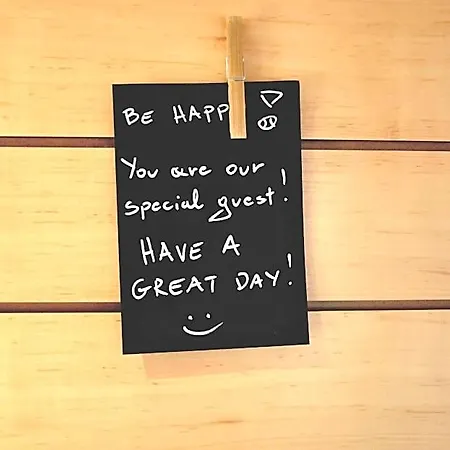 BE HAPP !
You are our
special guest!
HAVE A
GREAT DAY!